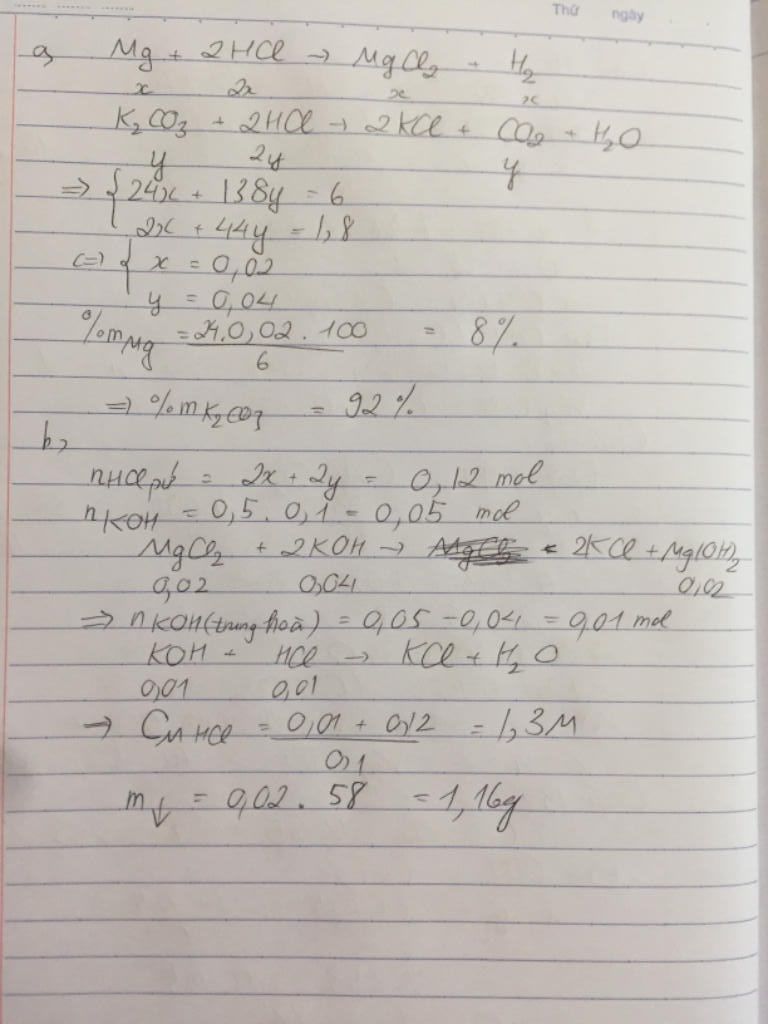 Thứ ngày
a, Mg + 2HCl → MgCl2 + H2
x 2x x x
K2CO3 + 2HCl → 2KCl + CO2 + H2O
y 2y y
=> { 24x + 138y = 6
2x + 44y = 1,8
<=> { x = 0,02
y = 0,04
%mMg = 24.0,02.100 / 6 = 8%.
=> %mK2CO3 = 92%
b,
nHCl pứ = 2x + 2y = 0,12 mol
nKOH = 0,5.0,1 = 0,05 mol
MgCl2 + 2KOH → 2KCl + Mg(OH)2
0,02 0,04 0,02
=> nKOH(trung hoà) = 0,05 - 0,04 = 0,01 mol
KOH + HCl → KCl + H2O
0,01 0,01
→ CM HCl = 0,01 + 0,12 / 0,1 = 1,3M
m↓ = 0,02.58 = 1,16g